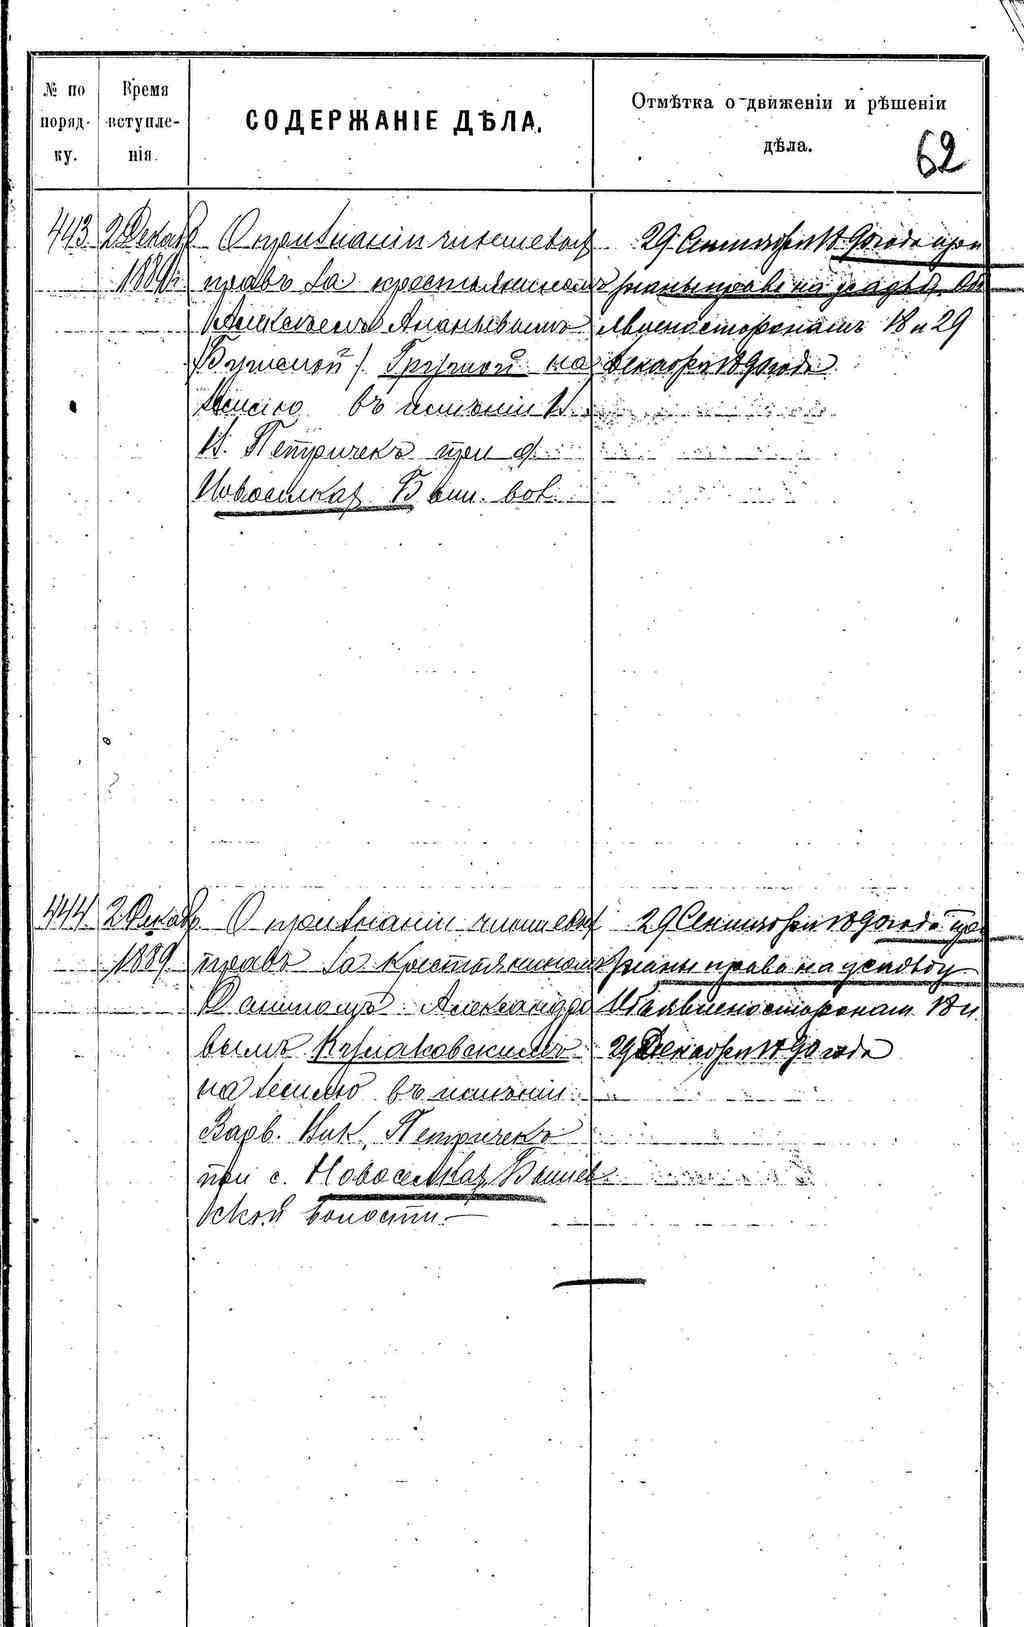 № по поряд- ку.
Время вступле- нія.
СОДЕРЖАНІЕ ДѢЛА.
Отмѣтка о движеніи и рѣшеніи дѣла.
62
443. 2 Декаб. 1889 г.
О признаніи чиншевых
правъ за крестьянином
Алексѣемъ Ананьевымъ
на
землю въ имѣніи В.
Н. Петричекъ при с.
Новоселках Быш. вол.
29 Сентября 1890 года при
знаны права на усадьб. Объ
явлено сторонамъ 18 и 29
декабря 1890 года
444. 2 Декабр. 1889
О признаніи чиншевых
правъ за крестьянином
Александро
вымъ
на землю въ имѣніи
Варв. Ник. Петричекъ
при с. Новоселках Бышев
ской волости.—
29 Сентября 1890 года при
знаны права на усадьбу
Объявлено сторонам 18 и
29 Декабря 1890 года